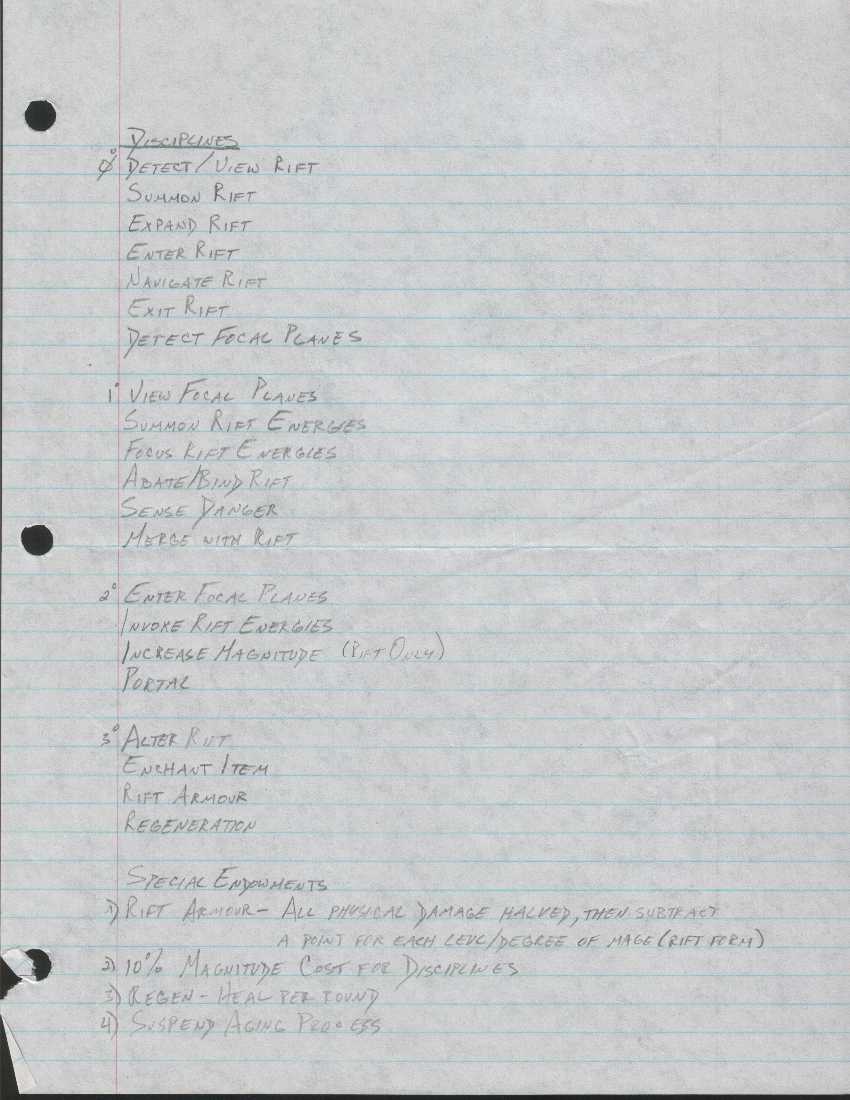 DISCIPLINES
0° DETECT/VIEW RIFT
SUMMON RIFT
EXPAND RIFT
ENTER RIFT
NAVIGATE RIFT
EXIT RIFT
DETECT FOCAL PLANES
1° VIEW FOCAL PLANES
SUMMON RIFT ENERGIES
FOCUS RIFT ENERGIES
ABATE/BIND RIFT
SENSE DANGER
MERGE WITH RIFT
2° ENTER FOCAL PLANES
INVOKE RIFT ENERGIES
INCREASE MAGNITUDE (RIFT ONLY)
PORTAL
3° ALTER RIFT
ENCHANT ITEM
RIFT ARMOUR
REGENERATION
SPECIAL ENDOWMENTS
1) RIFT ARMOUR - ALL PHYSICAL DAMAGE HALVED, THEN SUBTRACT
A POINT FOR EACH LEVL/DEGREE OF MAGE (RIFT FORM)
2) 10% MAGNITUDE COST FOR DISCIPLINES
3) REGEN - HEAL PER ROUND
4) SUSPEND AGING PROCESS